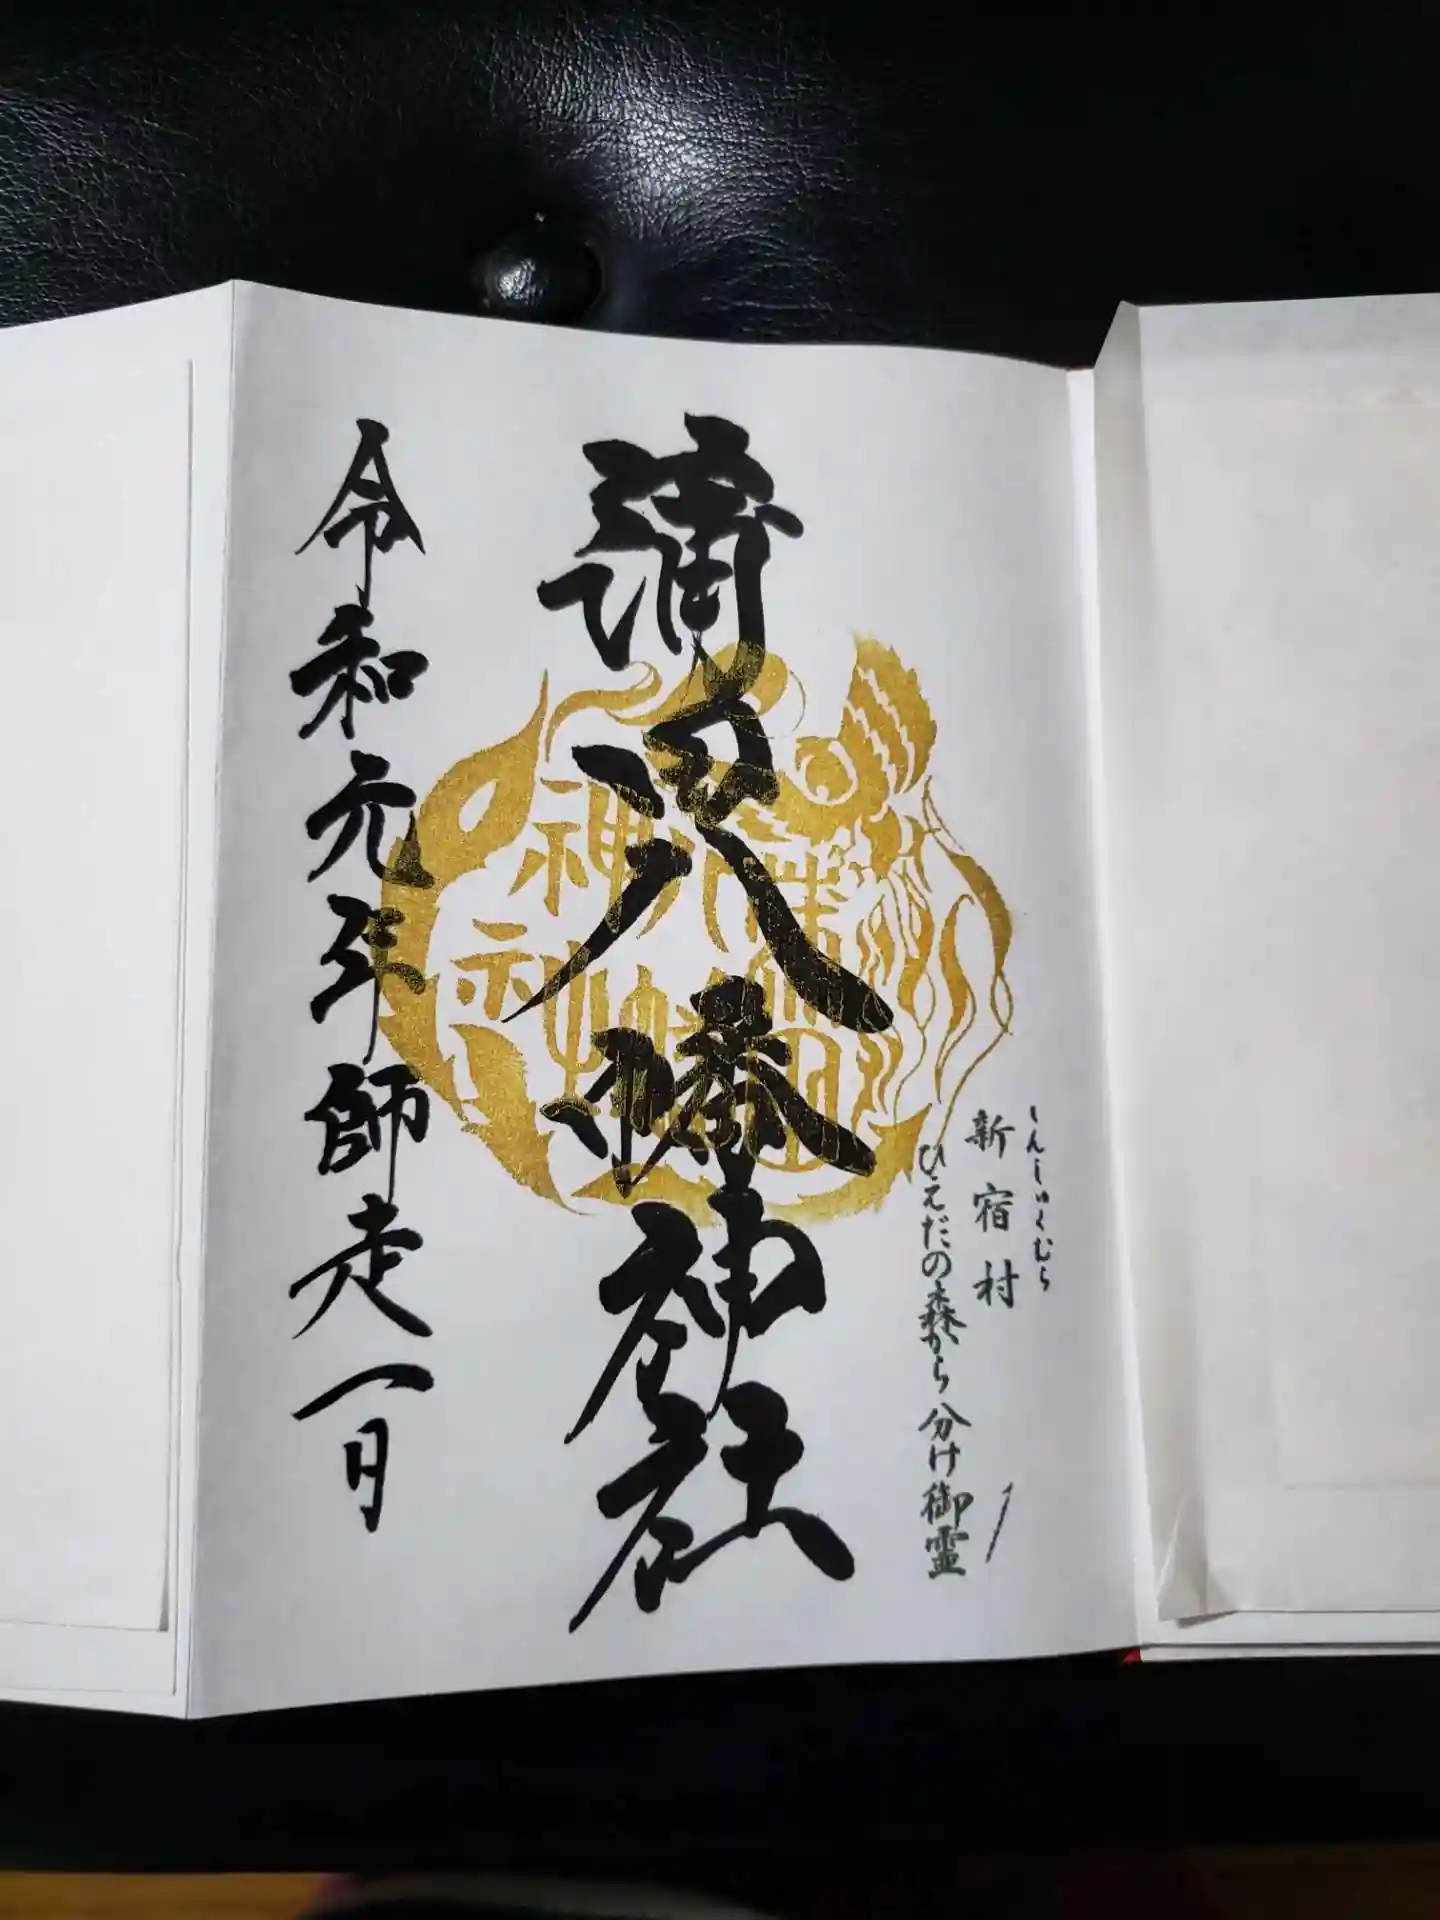 しんしゅくむら
新宿村
ひえだの森から分け御霊
蒲田八幡神社
蒲田
八幡
神社
令和元年師走一日